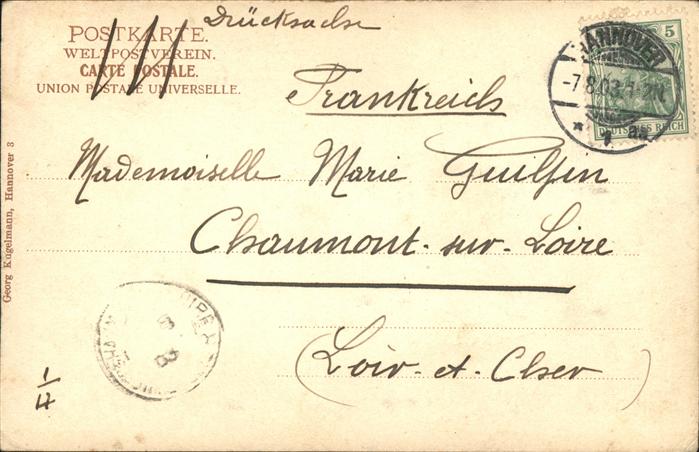 Drücksache
POSTKARTE.
WELTPOSTVEREIN.
CARTE POSTALE.
UNION POSTALE UNIVERSELLE.
HANNOVER
-7.8.03.
* 1
5
DEUTSCHES REICH
Frankreich
Mademoiselle Marie
Chaumont-sur-Loire
(Loir-et-Cher)
Georg Kugelmann, Hannover 3